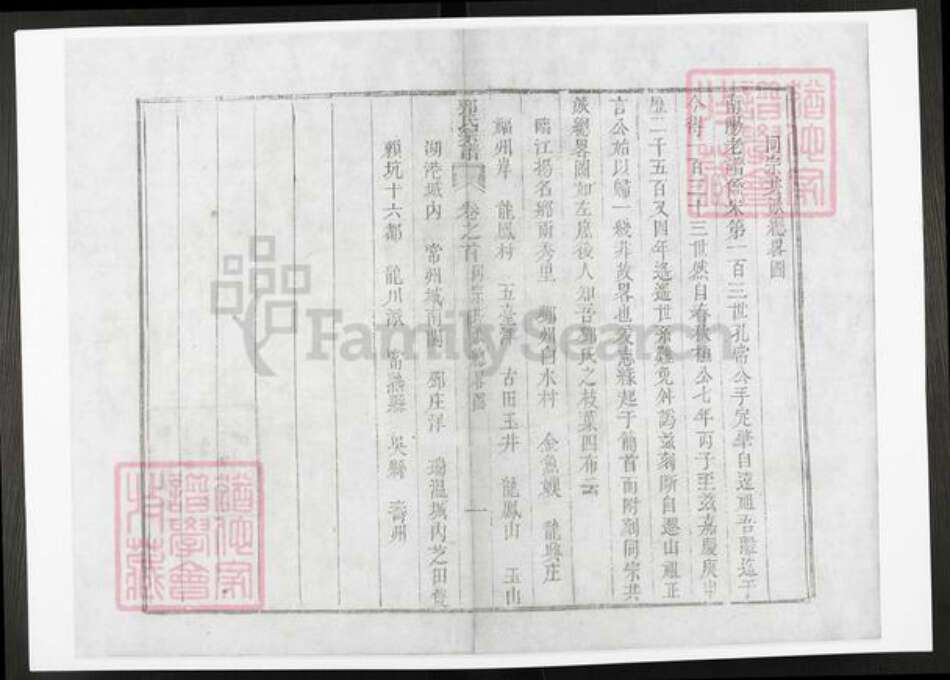 同宗共派總畧圖
南陽老譜係宋第一百三世孔常公手定肇自遠祖吾離迄于
今得一百三十三世然自春秋桓公七年丙子至茲嘉慶庚申
歷二千五百又四年遙遙世系難免舛譌茲刻斷自遷山祖正
言公始以歸一幾非敢畧也爰志緣起于簡首而附刻同宗共
派總畧圖如左庶後人知吾鄧氏之枝葉四布云
臨江揚名鄉雨秀里 鄭州白水村 金魚 龍興庄
福州岸 龍鳳村 五臺 古田玉井 龍鳳山 玉山
鄧氏宗譜 卷之首 同宗共派總畧圖 一
湖港城內 常州城南門 鄧庄洋 瑞溫城內芝田
賴坑十六都 龍川派 富 縣 吳縣 壽州
猶他家譜學會收藏
猶他家譜學會收藏
FamilySearch